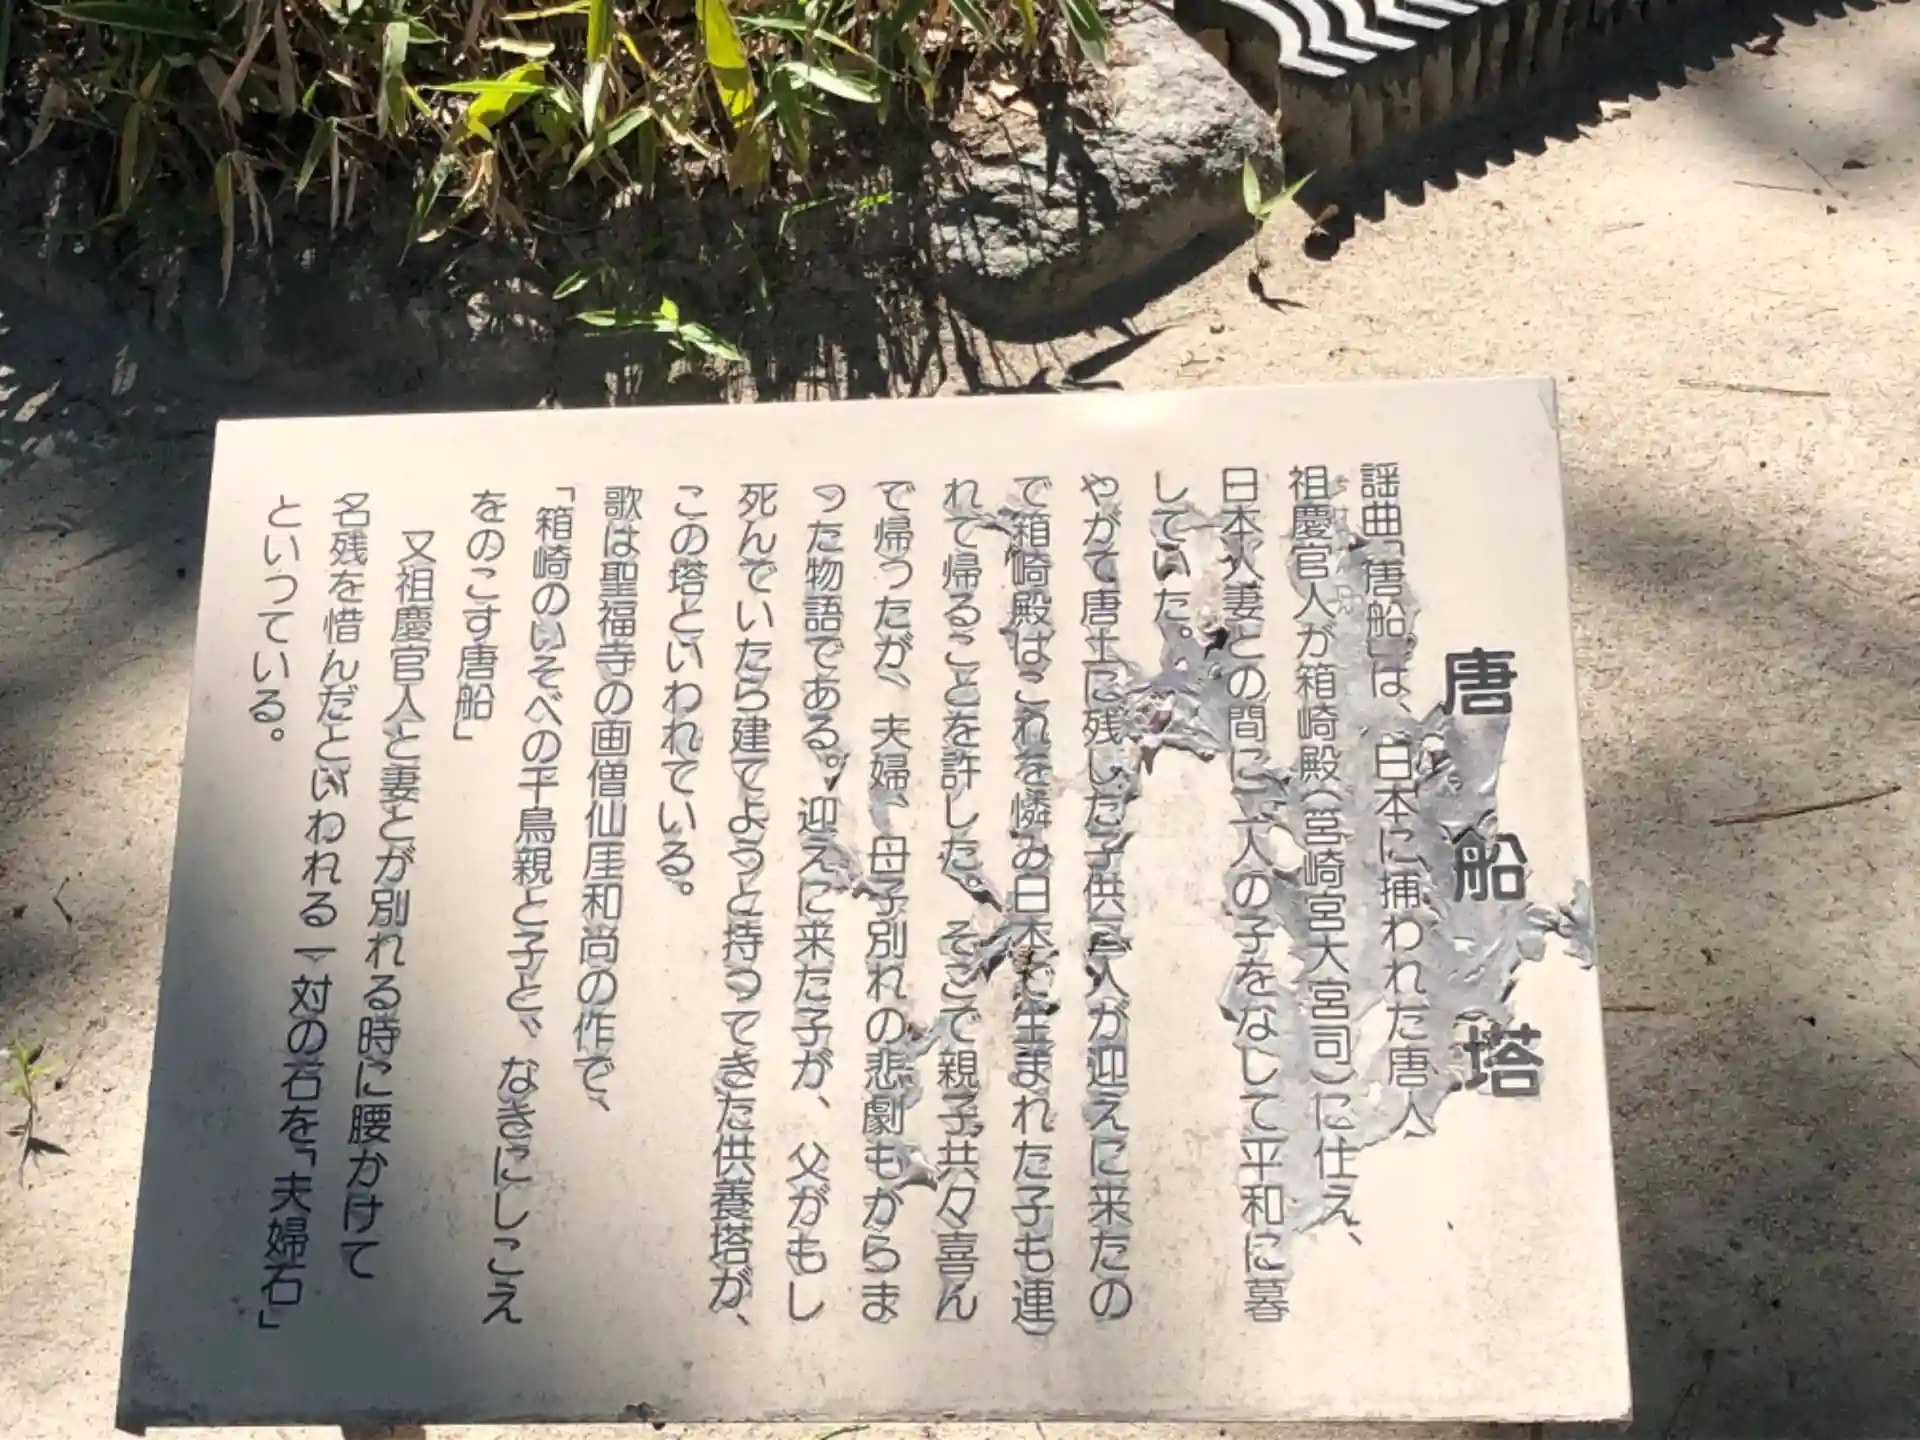 唐船塔
謡曲「唐船」は、日本に捕われた唐人
祖慶官人が箱崎殿(筥崎宮大宮司)に仕え、
日本人妻との間に二人の子をなして平和に暮
していた。
やがて唐土に残した子供二人が迎えに来たの
で箱崎殿はこれを憐み日本で生まれた子も連
れて帰ることを許した。そこで親子共々喜ん
で帰ったが、夫婦、母子別れの悲劇もからま
った物語である。迎えに来た子が、父がもし
死んでいたら建てようと持ってきた供養塔が、
この塔といわれている。
歌は聖福寺の画僧仙厓和尚の作で、
「箱崎のいそべの千鳥親と子と、なきにしこえ
をのこす唐船」
又祖慶官人と妻とが別れる時に腰かけて
名残を惜んだといわれる一対の石を「夫婦石」
といつている。